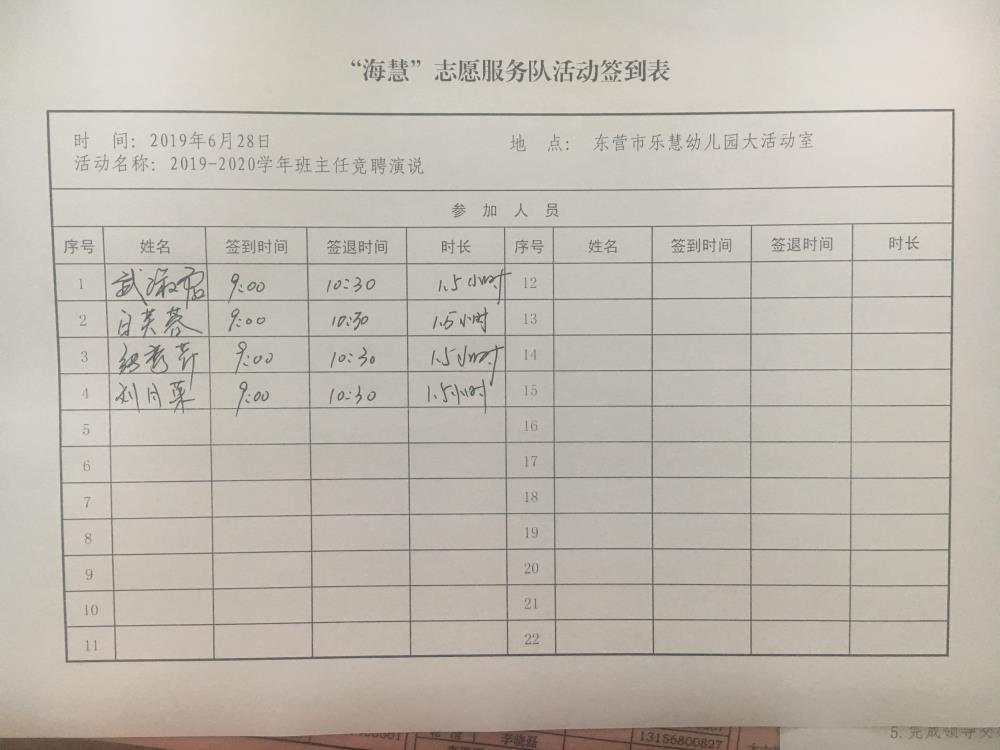 “海慧”志愿服务队活动签到表
时 间: 2019年6月28日 地 点: 东营市乐慧幼儿园大活动室
活动名称: 2019-2020学年班主任竞聘演说
参 加 人 员
序号 姓名 签到时间 签退时间 时长 序号 姓名 签到时间 签退时间 时长
1 武淑君 9:00 10:30 1.5小时 12
2 白芙蓉 9:00 10:30 1.5小时 13
3 9:00 10:30 1.5小时 14
4 刘月菊 9:00 10:30 1.5小时 15
5 16
6 17
7 18
8 19
9 20
10 21
11 22
李晓磊 13156800827
5.完成领导交